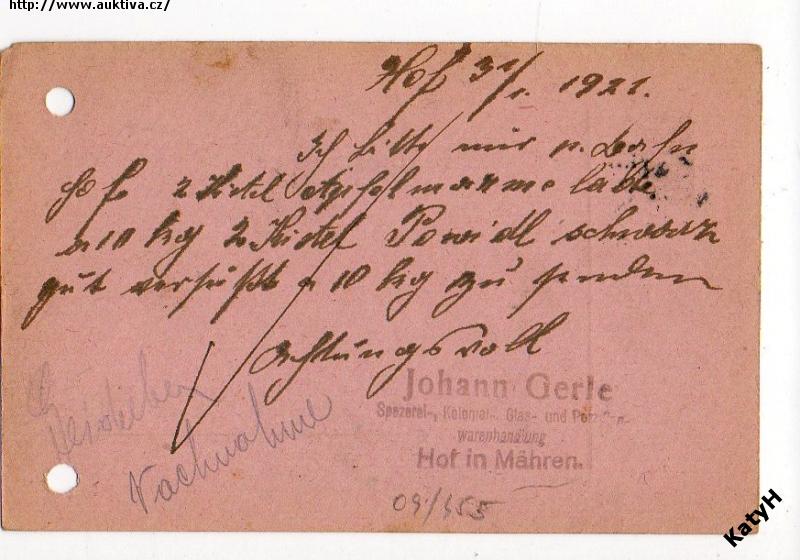 http://www.auktiva.cz/
Hof 31/1. 1921.
Ich bitte mir p. Bahn
Hof 2 Kistel Apfelmarmelade
a 10 kg 2 Kistel Powidl schwarz
gut versüßt a 10 kg zu senden
Achtungsvoll
Johann Gerle
Spezerei-, Kolonial-, Glas- und
warenhandlung
Hof in Mähren.
Nachnahme
09/455
KatyH